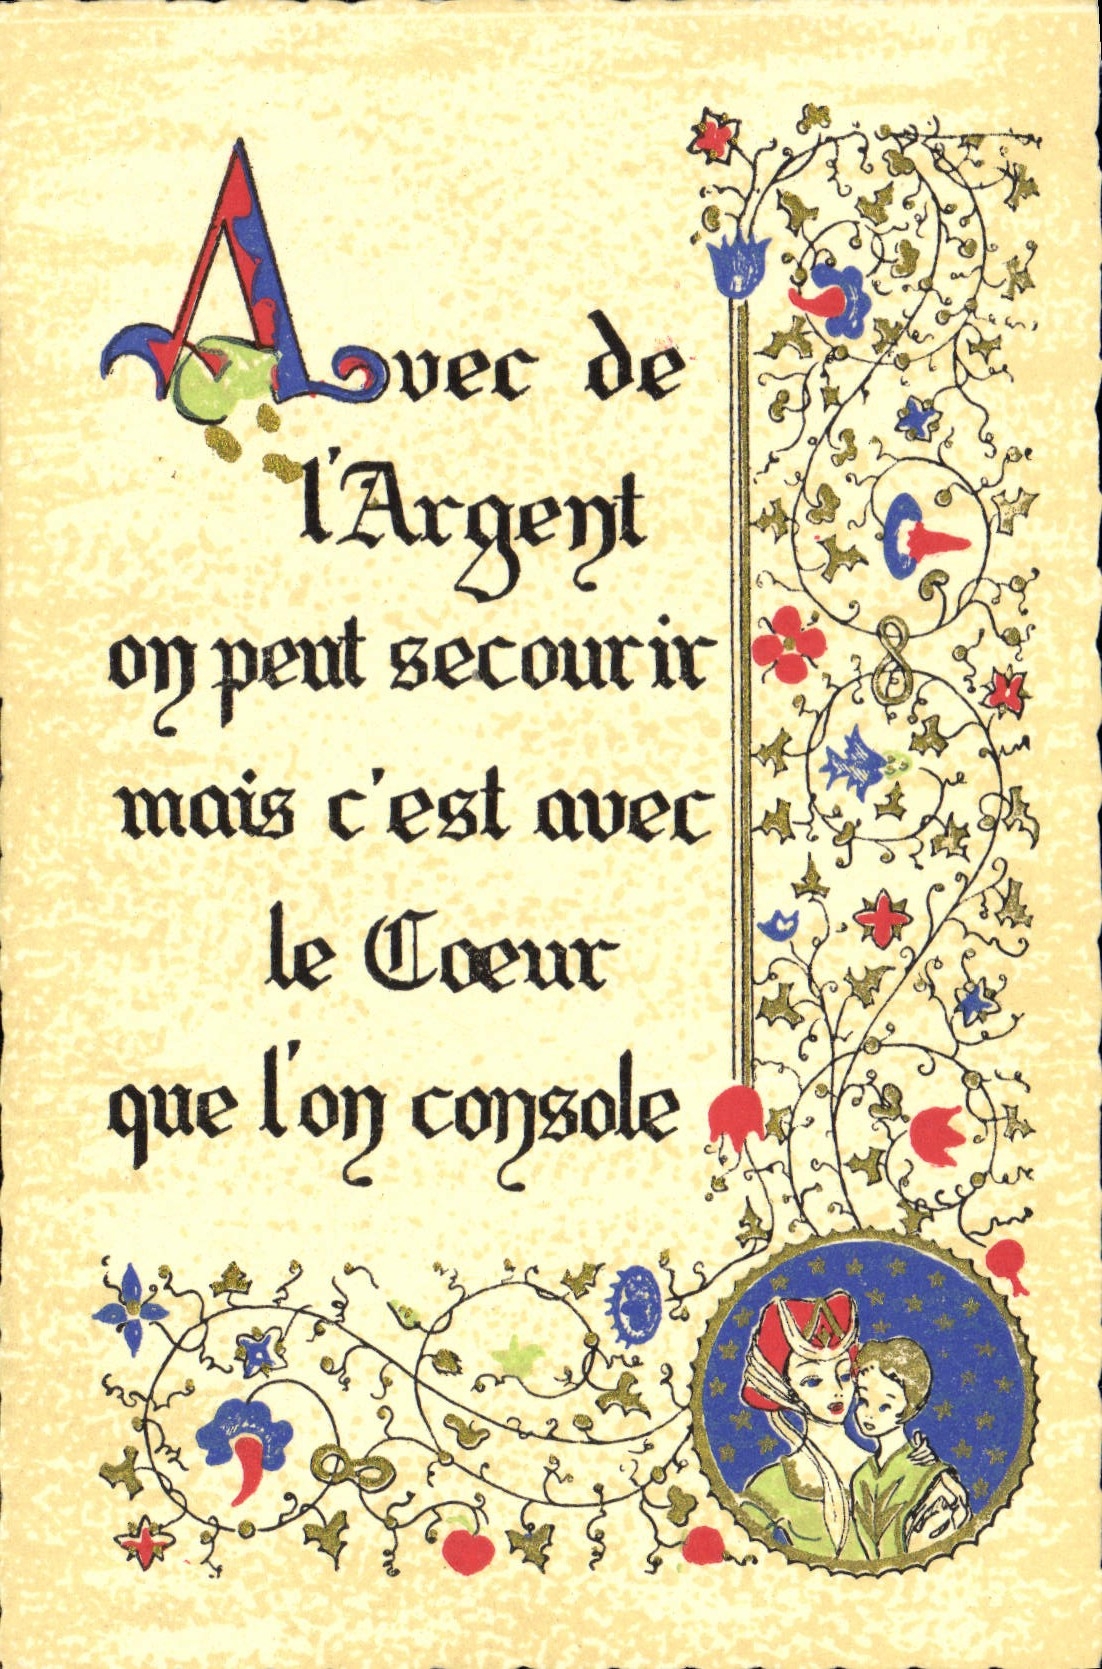 Avec de
l'Argent
on peut secourir
mais c'est avec
le Cœur
que l'on console